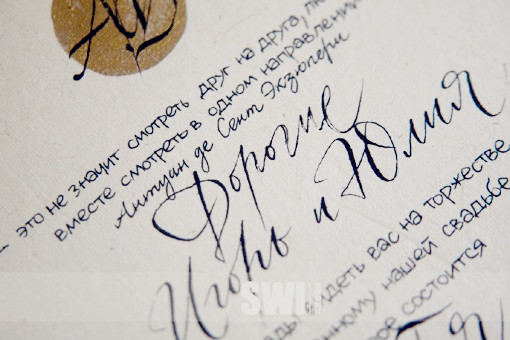 АД
... это не значит смотреть друг на друга, лю
вместе смотреть в одном направлении
Антуан де Сент Экзюпери
Дорогие
Игорь и Юлия
ады видеть вас на торжестве
енному нашей свадьбе
рое состоится
SWJ